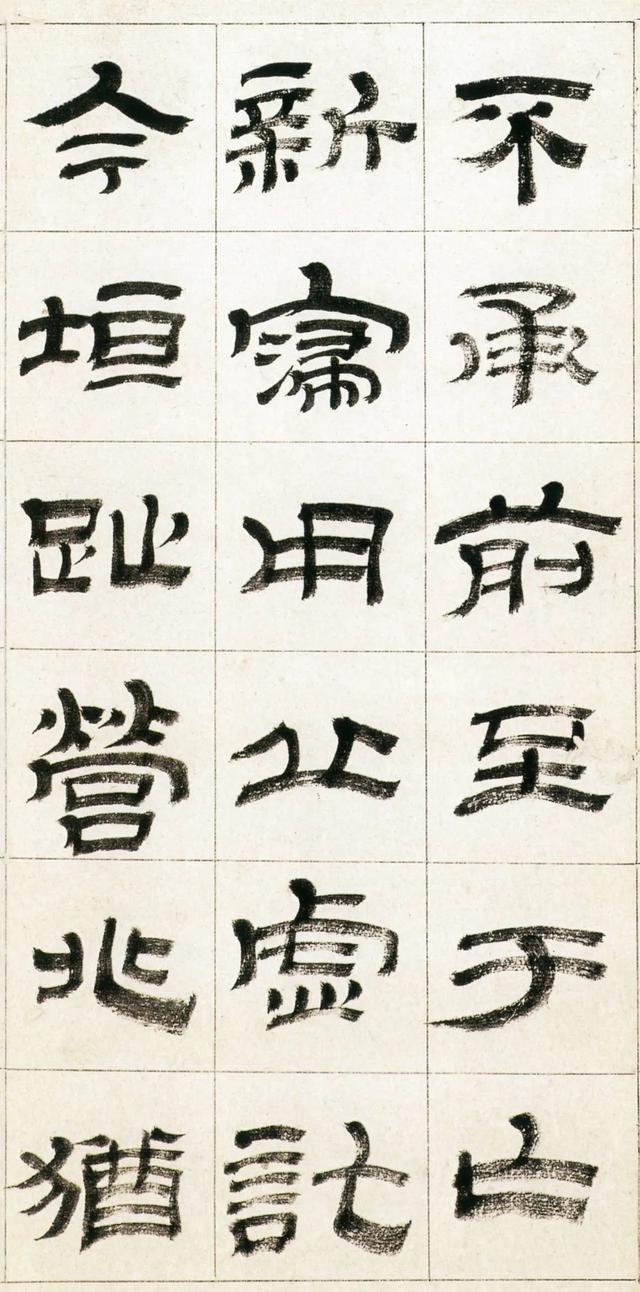 不承前至于亡
新寖用丘虛訖
今垣趾營兆猶